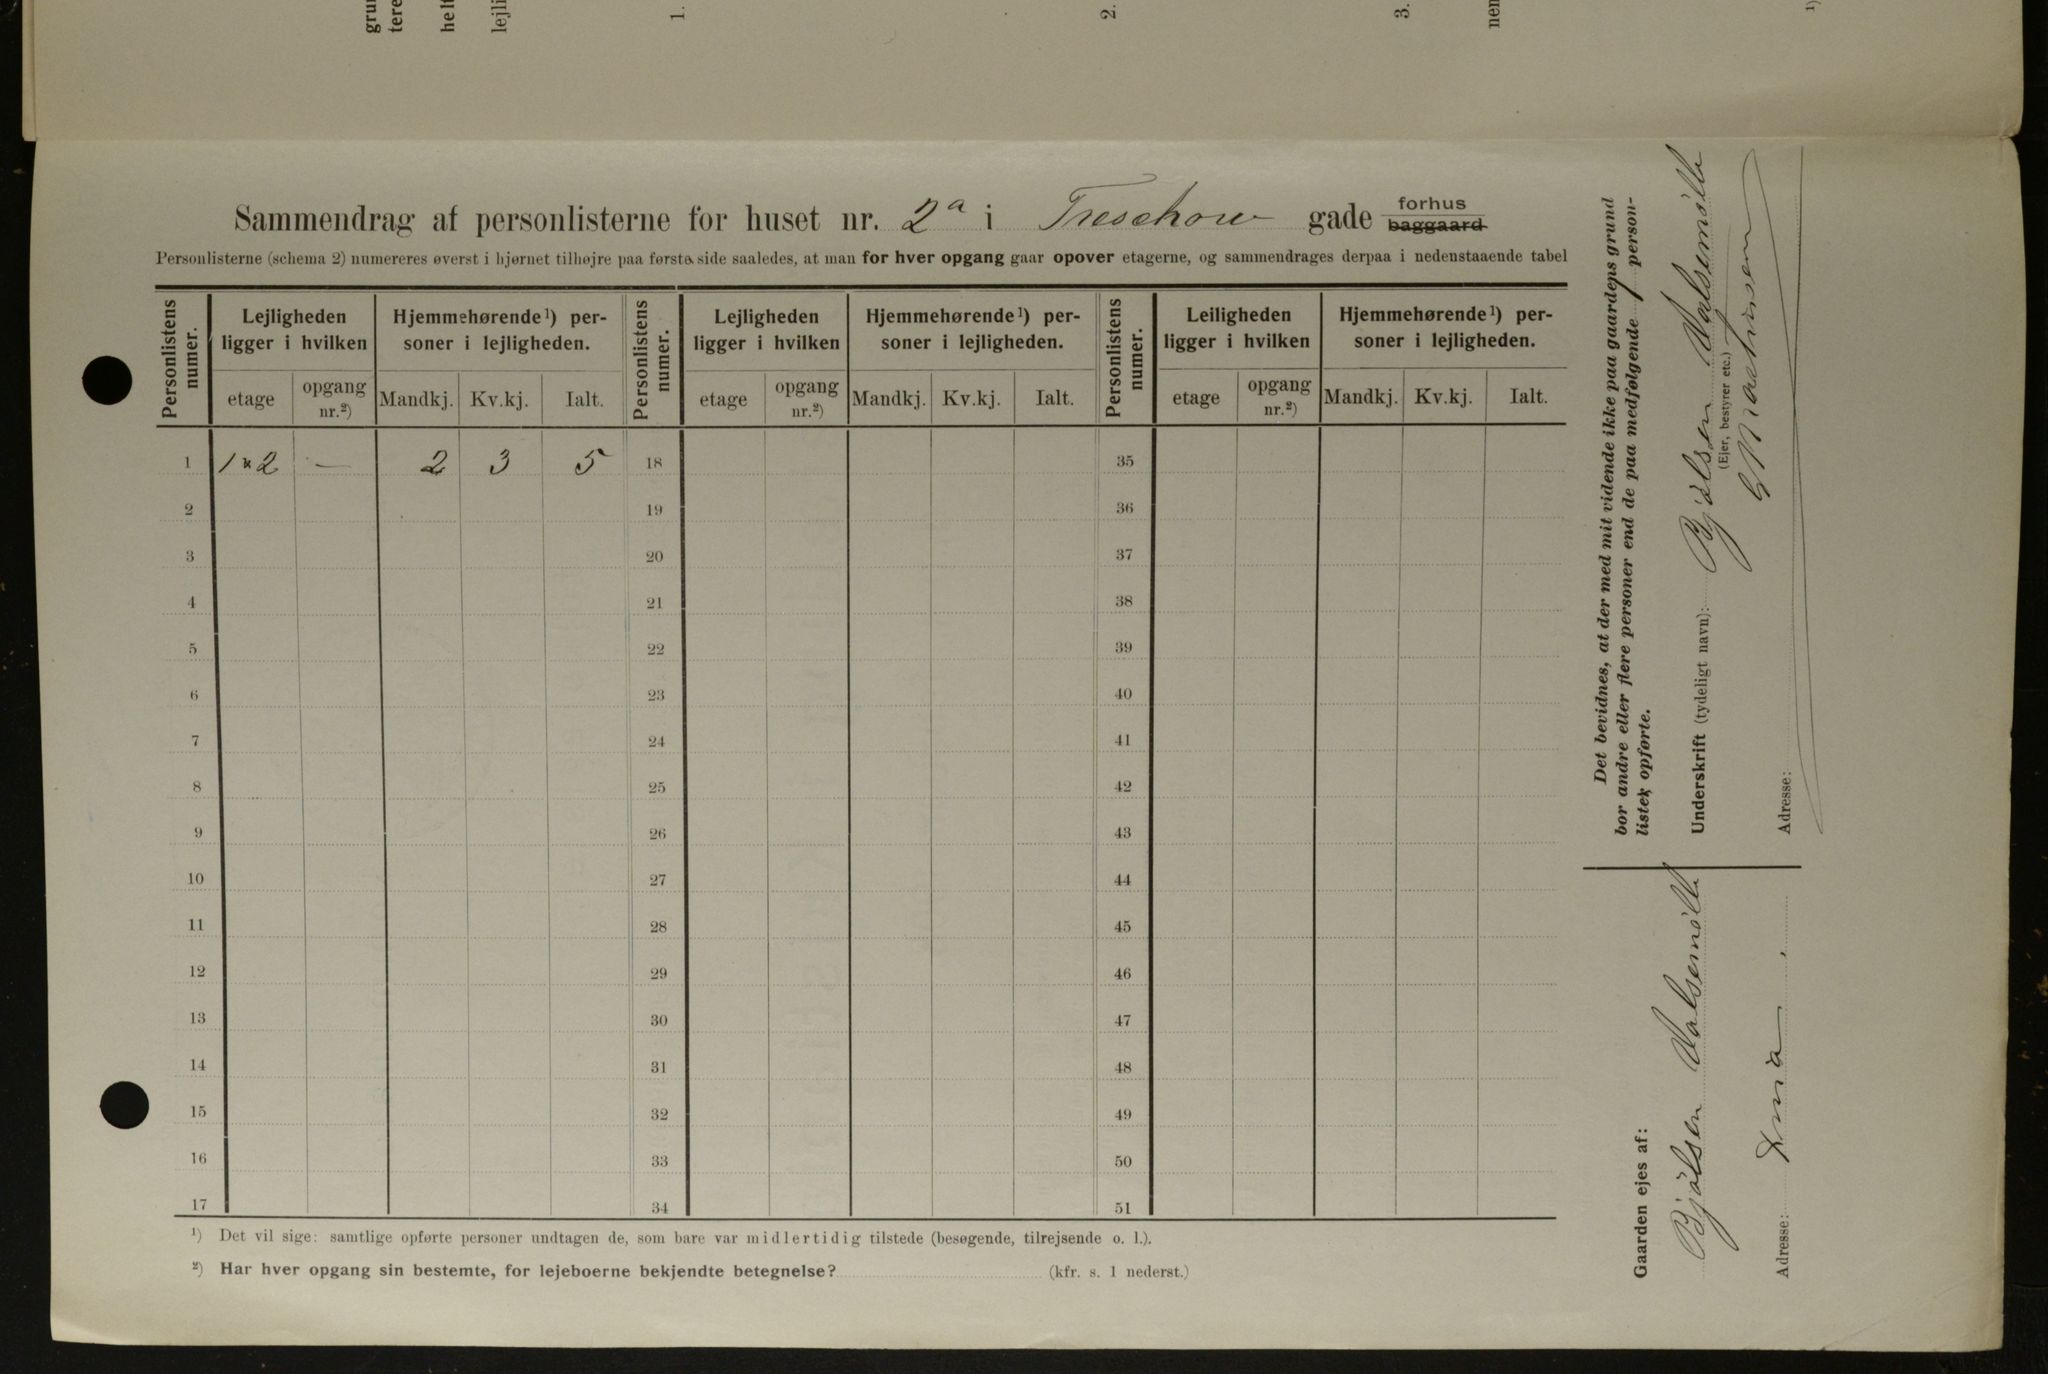 grun
tere
helt
lejli
1.
2.
3.
nen
1)
Sammendrag af personlisterne for huset nr. 2a i Treschow gade forhus baggaard
Personlisterne (schema 2) numereres øverst i hjørnet tilhøjre paa første side saaledes, at man for hver opgang gaar opover etagerne, og sammendrages derpaa i nedenstaaende tabel
Personlistens numer. Lejligheden ligger i hvilken Hjemmehørende¹) personer i lejligheden. Personlistens numer. Lejligheden ligger i hvilken Hjemmehørende¹) personer i lejligheden. Personlistens numer. Leiligheden ligger i hvilken Hjemmehørende¹) personer i lejligheden.
etage opgang nr.²) Mandkj. Kv.kj. Ialt. etage opgang nr.²) Mandkj. Kv.kj. Ialt. etage opgang nr.²) Mandkj. Kv.kj. Ialt.
1 1 & 2 — 2 3 5 18 35
2 19 36
3 20 37
4 21 38
5 22 39
6 23 40
7 24 41
8 25 42
9 26 43
10 27 44
11 28 45
12 29 46
13 30 47
14 31 48
15 32 49
16 33 50
17 34 51
¹) Det vil sige: samtlige opførte personer undtagen de, som bare var midlertidig tilstede (besøgende, tilrejsende o. l.).
²) Har hver opgang sin bestemte, for lejeboerne bekjendte betegnelse? (kfr. s. 1 nederst.)
Det bevidnes, at der med mit vidende ikke paa gaardens grund
bor andre eller flere personer end de paa medfølgende 1 person-
liste, opførte.
Underskrift (tydeligt navn): Bjølsen Valsemølle
(Ejer, bestyrer etc.)
Adresse:
Gaarden ejes af:
Bjølsen Valsemølle
Adresse: